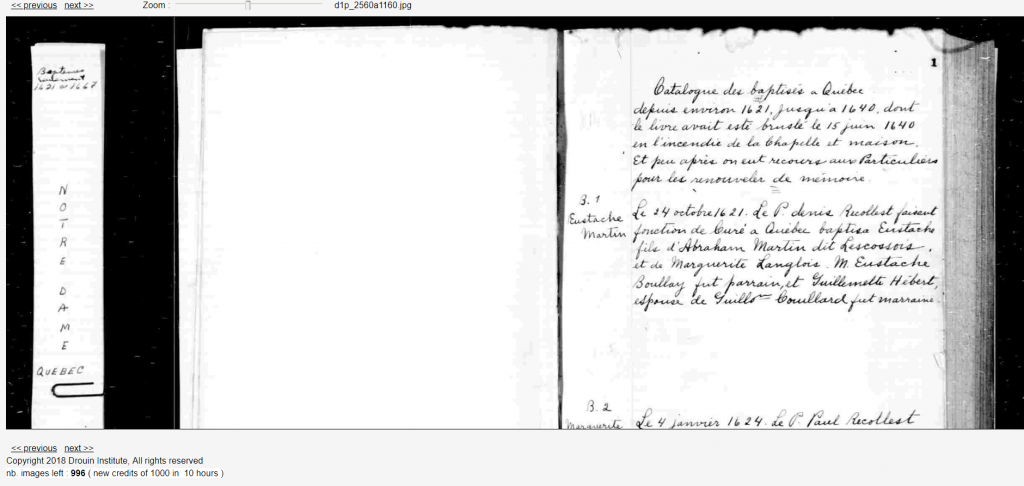 << previous next >> Zoom : d1p_2560a1160.jpg
Baptemes
seulement
1621 à 1667
NOTRE
DAME
QUEBEC
1
Catalogue des baptisés a Québec
depuis environ 1621, jusqu'a 1640, dont
le livre avait esté bruslé le 15 juin 1640
en l'incendie de la Chapelle et maison.
Et peu après on eut recours aux Particuliers
pour les renouveler de mémoire.
B. 1
Eustache
Martin
Le 24 octobre 1621. Le P. denis Recollest faisant
fonction de Curé a Québec baptisa Eustache
fils d'Abraham Martin dit Lescossois,
et de Marguerite Langlois. M. Eustache
Boullay fut parrain, et Guillemette Hébert,
espouse de Guillme Couillard fut marraine.
B. 2
Marguerite
Le 4 janvier 1624. Le P. Paul Recollest
<< previous next >>
Copyright 2018 Drouin Institute, All rights reserved
nb. images left : 996 ( new credits of 1000 in 10 hours )